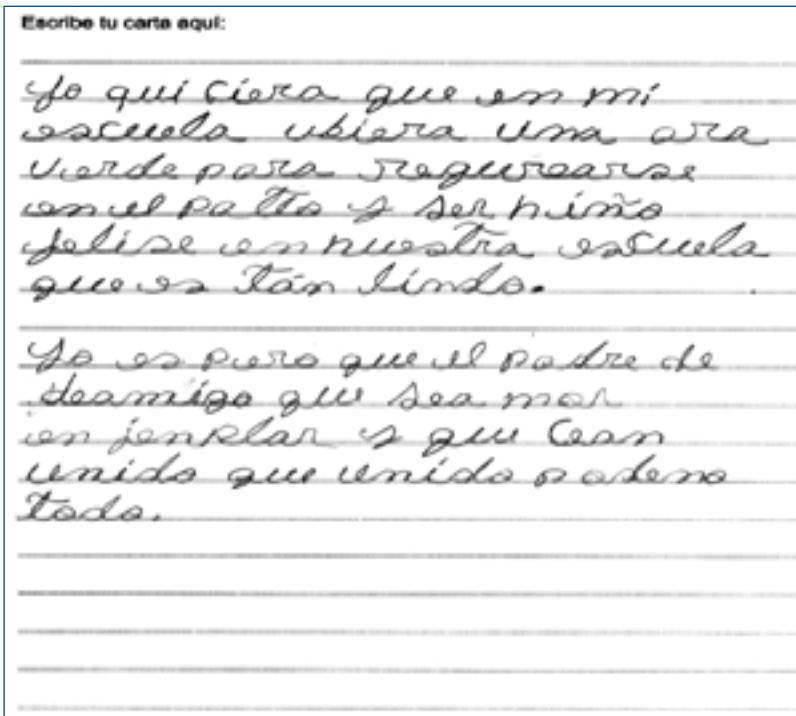 Escribe tu carta aquí:
Yo qui ciera que en mi
escuela ubiera una ara
verde para requrearse
en el patio y ser niño
felise en nuestra escuela
que es tán lindo.
Yo es pero que el padre de
deamigo que sea mar
en jenplar y que cean
unido que unido podemo
todo.